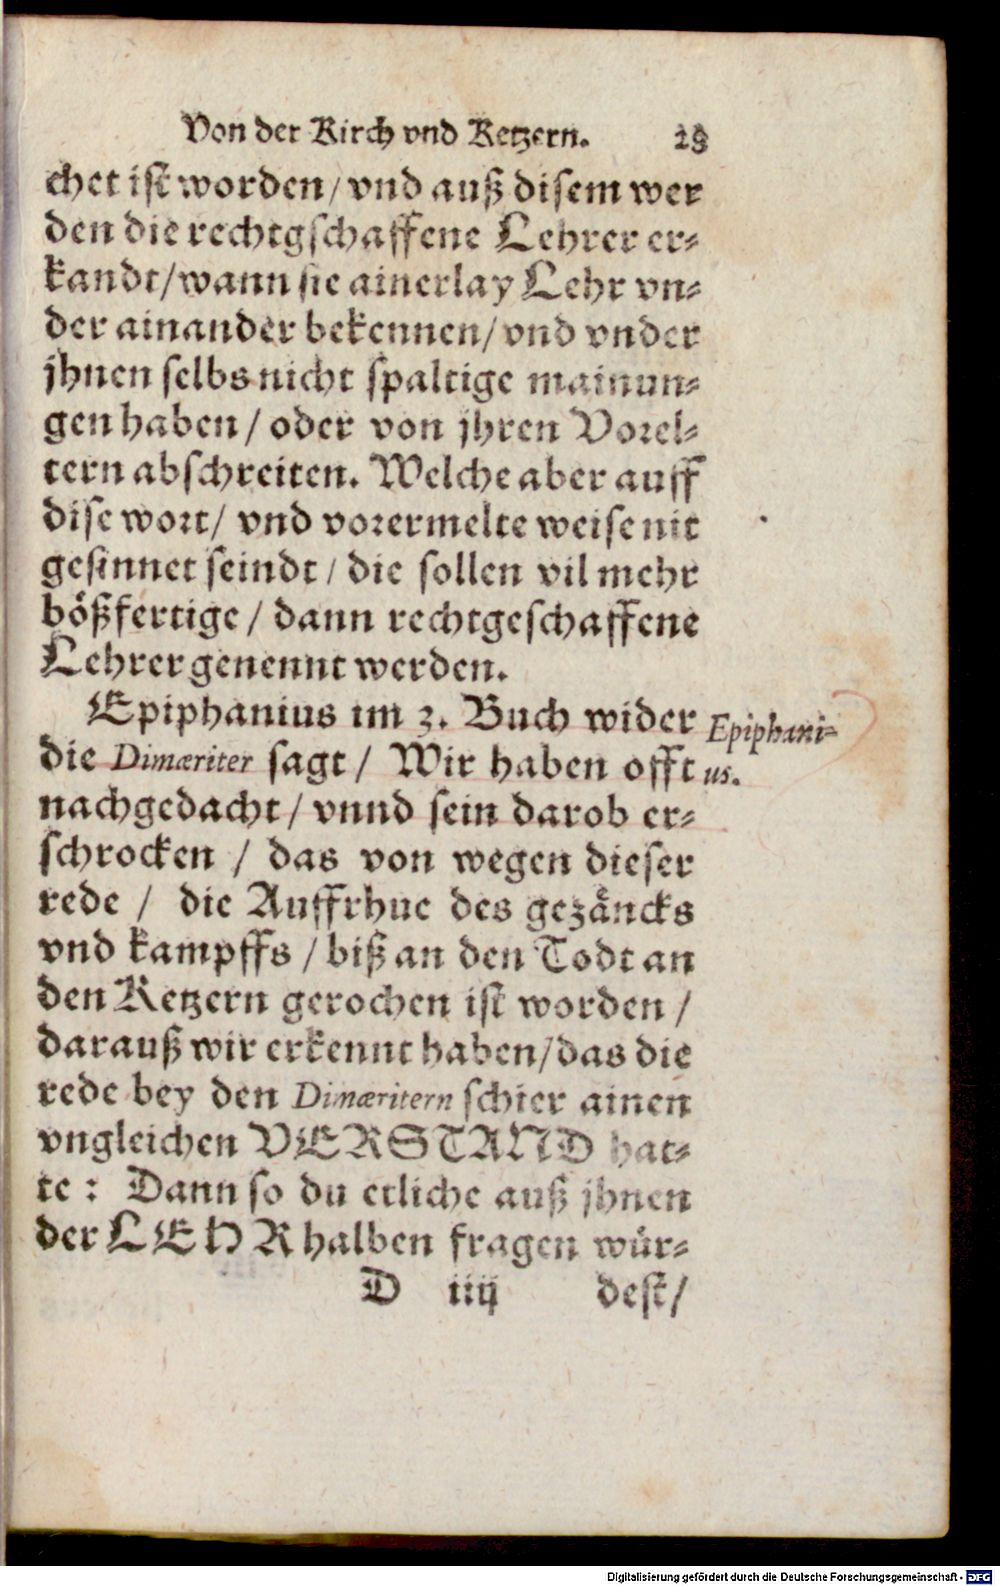 Von der Kirch vnd Ketzern. 28
chet ist worden/ vnd auß disem wer
den die rechtgschaffene Lehrer er⸗
kandt/wann sie ainerlay Lehr vn⸗
der ainander bekennen/ vnd vnder
jhnen selbs nicht spaltige mainun⸗
gen haben / oder von jhren Vorel⸗
tern abschreiten. Welche aber auff
dise wort/ vnd vorermelte weise nit
gesinnet seindt / die sollen vil mehr
bößfertige / dann rechtgeschaffene
Lehrer genennt werden.
Epiphanius im 3. Buch wider
Epiphani⸗
die Dimæriter sagt / Wir haben offt
us.
nachgedacht / vnnd sein darob er⸗
schrocken / das von wegen dieser
rede / die Auffrhue des gezäncks
vnd kampffs / biß an den Todt an
den Ketzern gerochen ist worden /
darauß wir erkennt haben/das die
rede bey den Dimæritern schier ainen
vngleichen VERSTAND hat⸗
te : Dann so du etliche auß jhnen
der LEHR halben fragen wür⸗
D iiij dest/
Digitalisierung gefördert durch die Deutsche Forschungsgemeinschaft - DFG